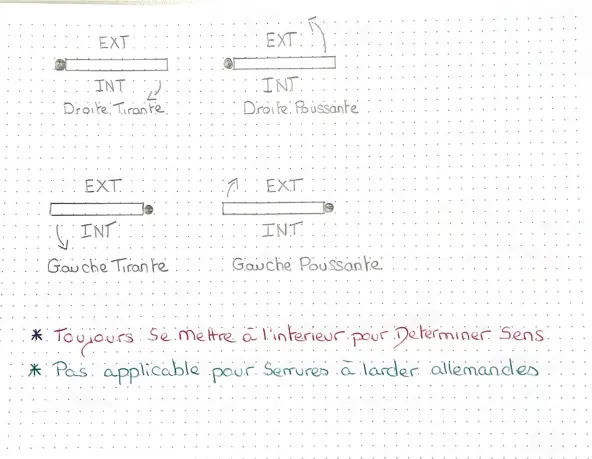 EXT
EXT
INT
INT
Droite Tirante
Droite Poussante
EXT
EXT
INT
INT
Gauche Tirante
Gauche Poussante
* Toujours se mettre à l'interieur pour Determiner Sens
* Pas applicable pour Serrures à larder allemandes